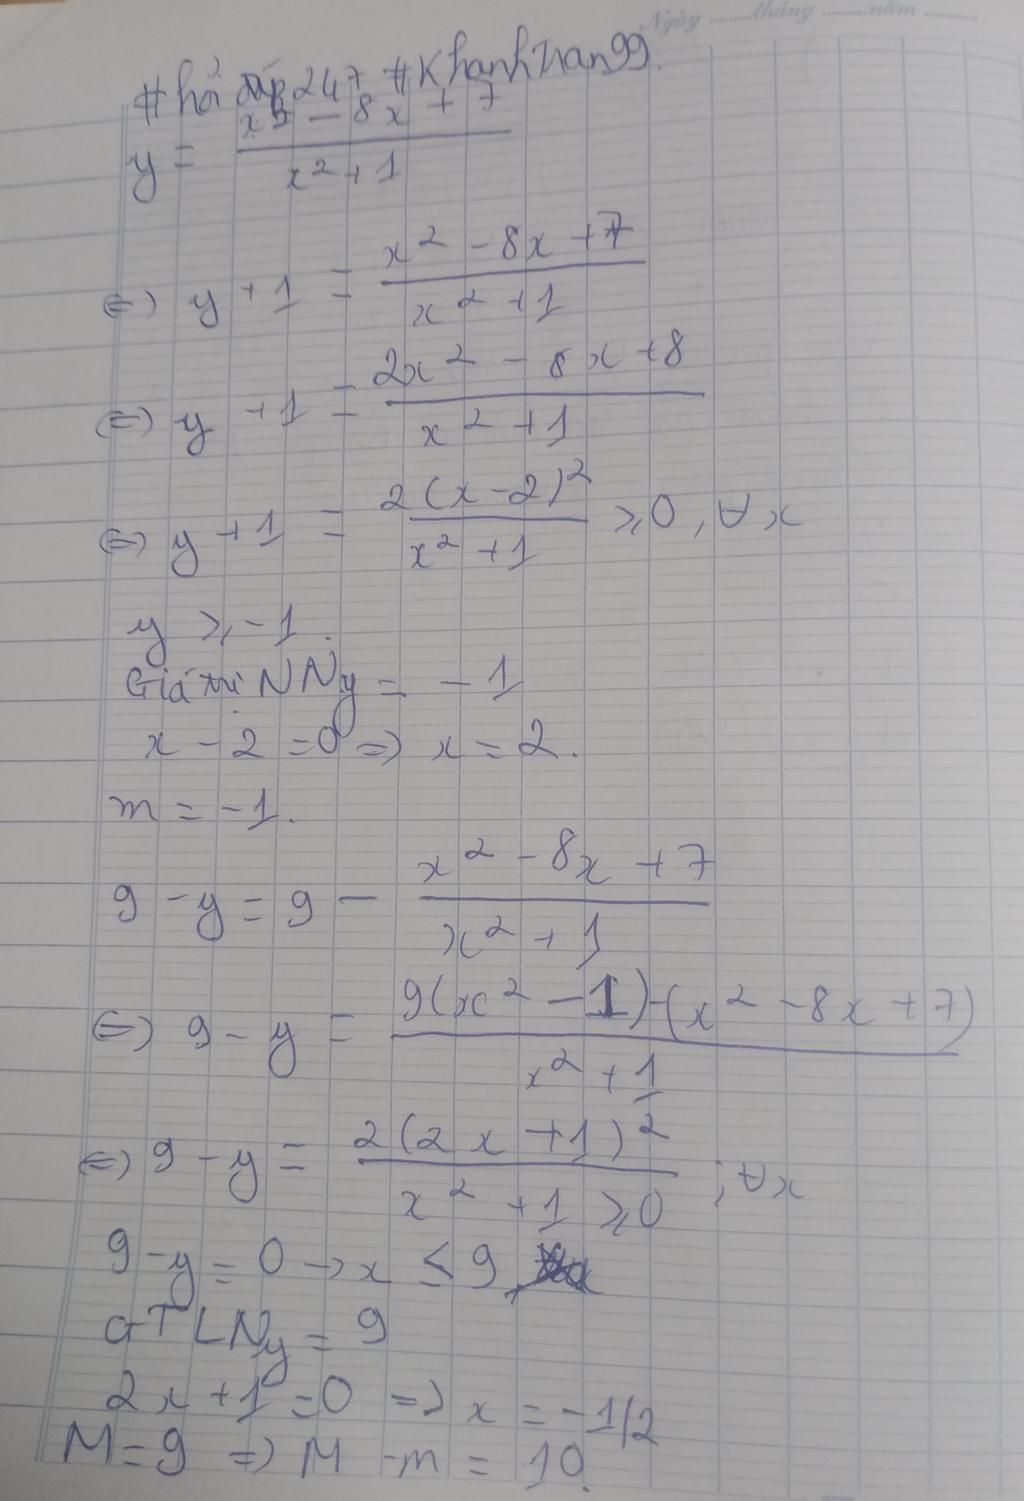 Ngày ........tháng ........năm ........
#hỏi đáp247 #Khanhtran99.
y = x² - 8x + 7 / x² + 1
⇔) y + 1 = x² - 8x + 7 / x² + 1
⇔) y + 1 = 2x² - 8x + 8 / x² + 1
⇔) y + 1 = 2(x-2)² / x² + 1 ⩾ 0, ∀x
y ⩾ -1.
Giá trị NNy = -1
x - 2 = 0 => x = 2.
m = -1.
9 - y = 9 - x² - 8x + 7 / x² + 1
⇔) 9 - y = 9(x² - 1) - (x² - 8x + 7) / x² + 1
⇔) 9 - y = 2(2x + 1)² / x² + 1 ⩾ 0 ; ∀x
9 - y = 0 -> x ≤ 9
GTLNy = 9
2x + 1 = 0 => x = -1/2
M = 9 => M - m = 10.